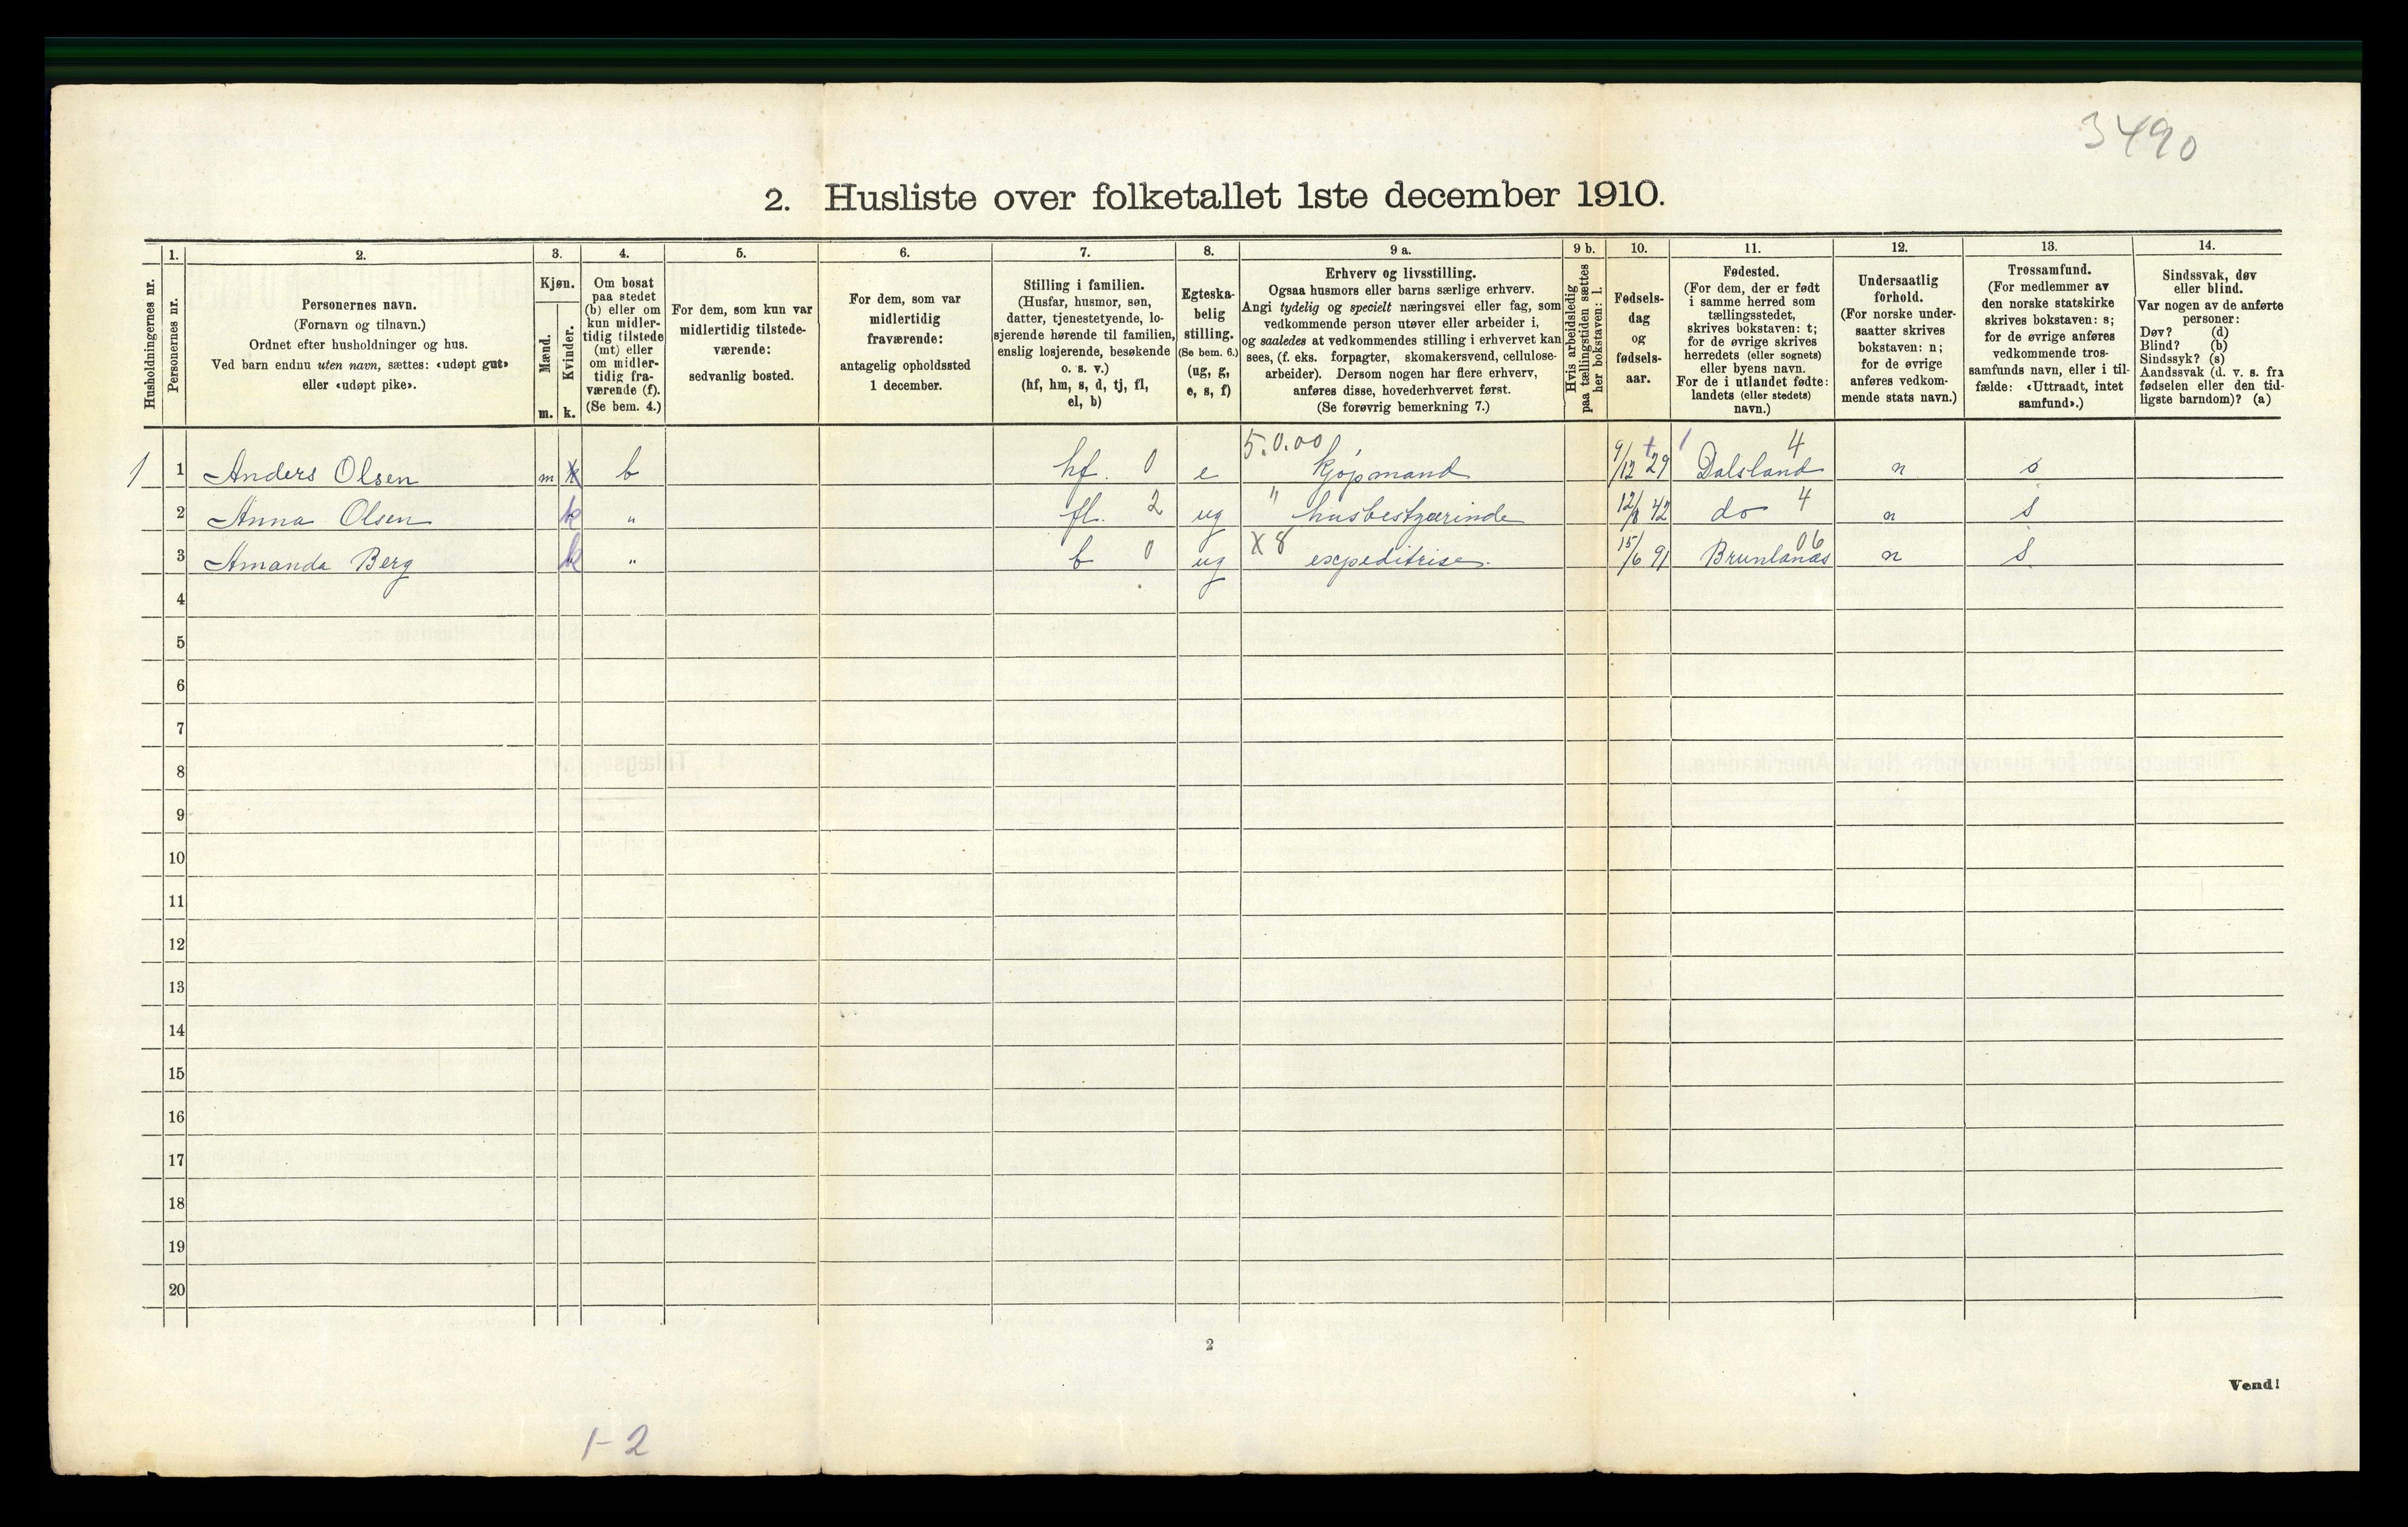 3490
2. Husliste over folketallet 1ste december 1910.
Husholdningernes nr.
1.
Personernes nr.
2.
Personernes navn.
(Fornavn og tilnavn.)
Ordnet efter husholdninger og hus.
Ved barn endnu uten navn, sættes: «udøpt gut»
eller «udøpt pike».
3.
Kjøn.
Mænd.
Kvinder.
m. k.
4.
Om bosat
paa stedet
(b) eller om
kun midler-
tidig tilstede
(mt) eller
om midler-
tidig fra-
værende (f).
(Se bem. 4.)
5.
For dem, som kun var
midlertidig tilstede-
værende:
sedvanlig bosted.
6.
For dem, som var
midlertidig
fraværende:
antagelig opholdssted
1 december.
7.
Stilling i familien.
(Husfar, husmor, søn,
datter, tjenestetyende, lo-
sjerende hørende til familien,
enslig losjerende, besøkende
o. s. v.)
(hf, hm, s, d, tj, fl,
el, b)
8.
Egteska-
belig
stilling.
(Se bem. 6.)
(ug, g,
e, s, f)
9 a.
Erhverv og livsstilling.
Ogsaa husmors eller barns særlige erhverv.
Angi tydelig og specielt næringsvei eller fag, som
vedkommende person utøver eller arbeider i,
og saaledes at vedkommendes stilling i erhvervet kan
sees, (f. eks. forpagter, skomakersvend, cellulose-
arbeider). Dersom nogen har flere erhverv,
anføres disse, hovederhvervet først.
(Se forøvrig bemerkning 7.)
9 b.
Hvis arbeidsledig
paa tællingstiden sættes
her bokstaven: l.
10.
Fødsels-
dag
og
fødsels-
aar.
11.
Fødested.
(For dem, der er født
i samme herred som
tællingsstedet,
skrives bokstaven: t;
for de øvrige skrives
herredets (eller sognets)
eller byens navn.
For de i utlandet fødte:
landets (eller stedets)
navn.)
12.
Undersaatlig
forhold.
(For norske under-
saatter skrives
bokstaven: n;
for de øvrige
anføres vedkom-
mende stats navn.)
13.
Trossamfund.
(For medlemmer av
den norske statskirke
skrives bokstaven: s;
for de øvrige anføres
vedkommende tros-
samfunds navn, eller i til-
fælde: «Uttraadt, intet
samfund».)
14.
Sindssvak, døv
eller blind.
Var nogen av de anførte
personer:
Døv? (d)
Blind? (b)
Sindssyk? (s)
Aandssvak (d. v. s. fra
fødselen eller den tid-
ligste barndom)? (a)
1 1 Anders Olsen m k b hf. 0 e 5.0.00 kjøpmand 9/12 + 29 1 Dalsland 4 n s
2 Anna Olsen k " fl. 2 ug " husbestyrerinde 12/8 42 do 4 n s
3 Amanda Berg k " b 0 ug X 8 expeditrise. 15/6 91 Brunlanæs 06 n s
4
5
6
7
8
9
10
11
12
13
14
15
16
17
18
19
20
2
Vend!
1-2